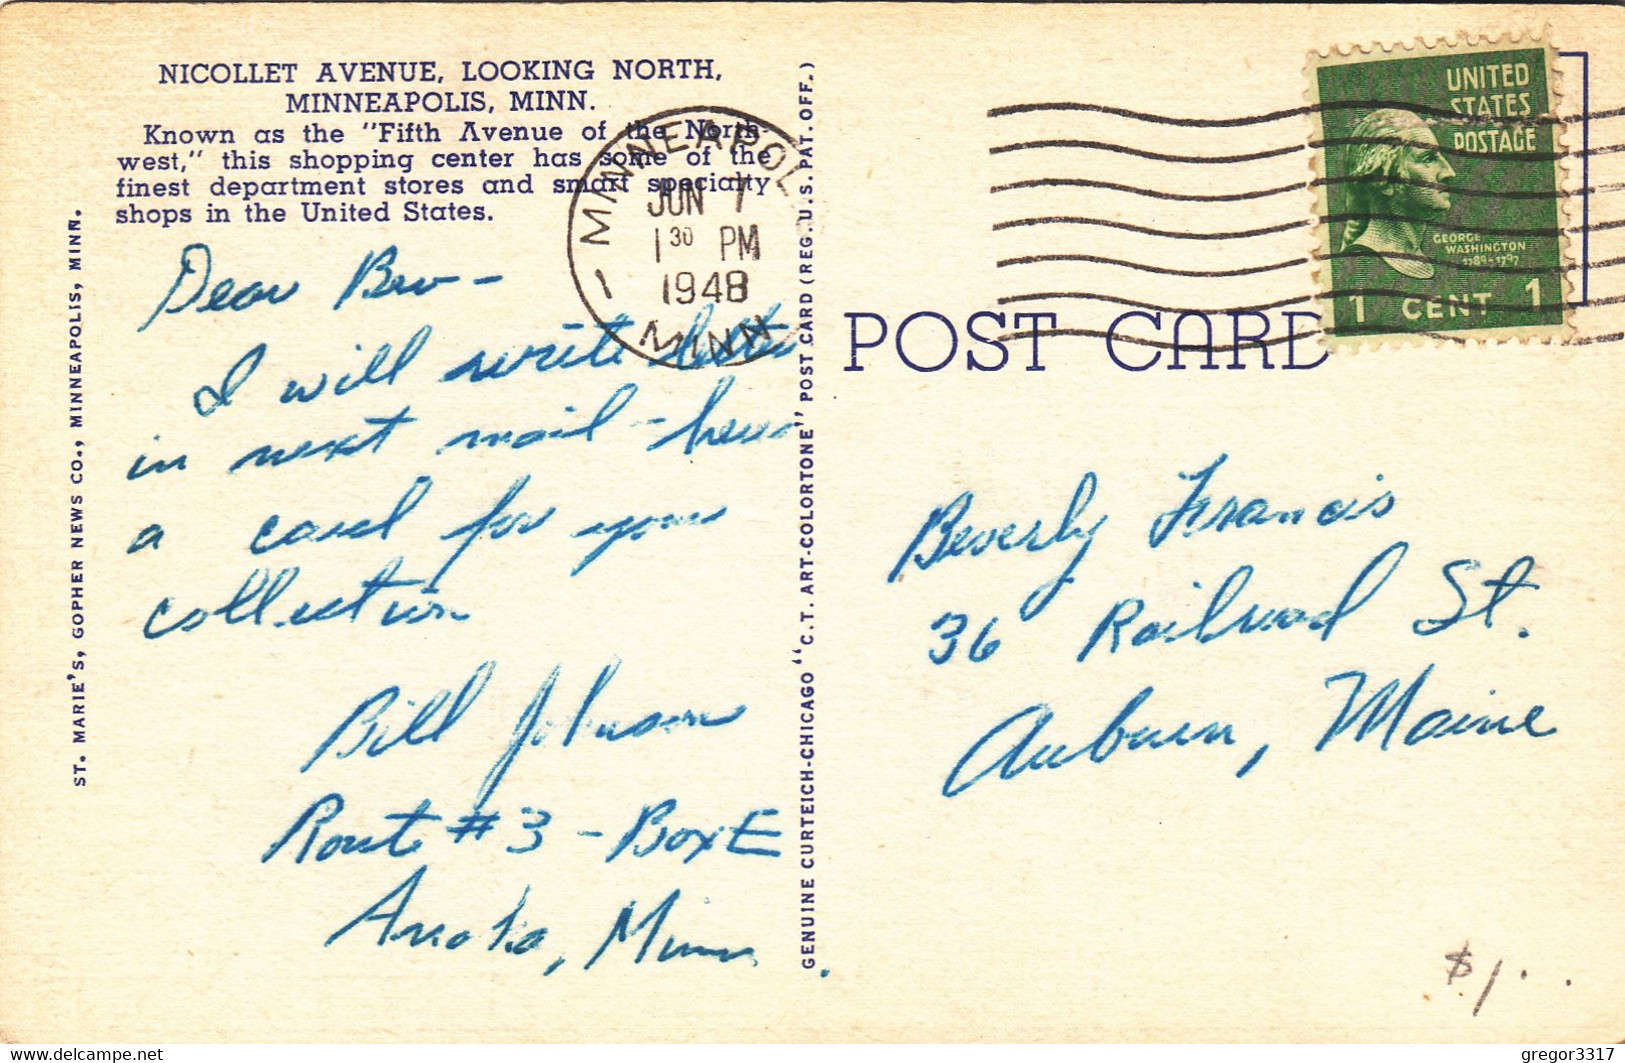 NICOLLET AVENUE, LOOKING NORTH,
MINNEAPOLIS, MINN.
Known as the "Fifth Avenue of the North-
west," this shopping center has some of the
finest department stores and smart specialty
shops in the United States.
MINNEAPOL
JUN 7
1 30 PM
1948
MINN
UNITED
STATES
POSTAGE
GEORGE
WASHINGTON
1789-1797
1 CENT 1
POST CARD
Dear Bev -
I will write letter
in next mail - here
a card for your
collection
Bill Johnson
Route #3 - Box E
Anoka, Minn.
Beverly Francis
36 Railroad St.
Auburn, Maine
ST. MARIE'S, GOPHER NEWS CO., MINNEAPOLIS, MINN.
GENUINE CURTEICH-CHICAGO "C.T. ART-COLORTONE" POST CARD (REG. U.S. PAT. OFF.)
$1..
delcampe.net
gregor3317